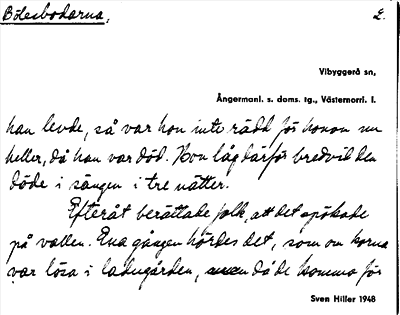 Bölesbodarna,
2.
Vibyggerå sn,
Ångermanl. s. doms. tg., Västernorrl. l.
han levde, så var hon inte rädd för honom nu
heller, då han var död. Hon låg därför bredvid den
döde i sängen i tre nätter.
Efteråt berättade folk, att det spökade
på vallen. Ena gången hördes det, som om korna
var lösa i ladugården, då de kommo för
Sven Hiller 1948